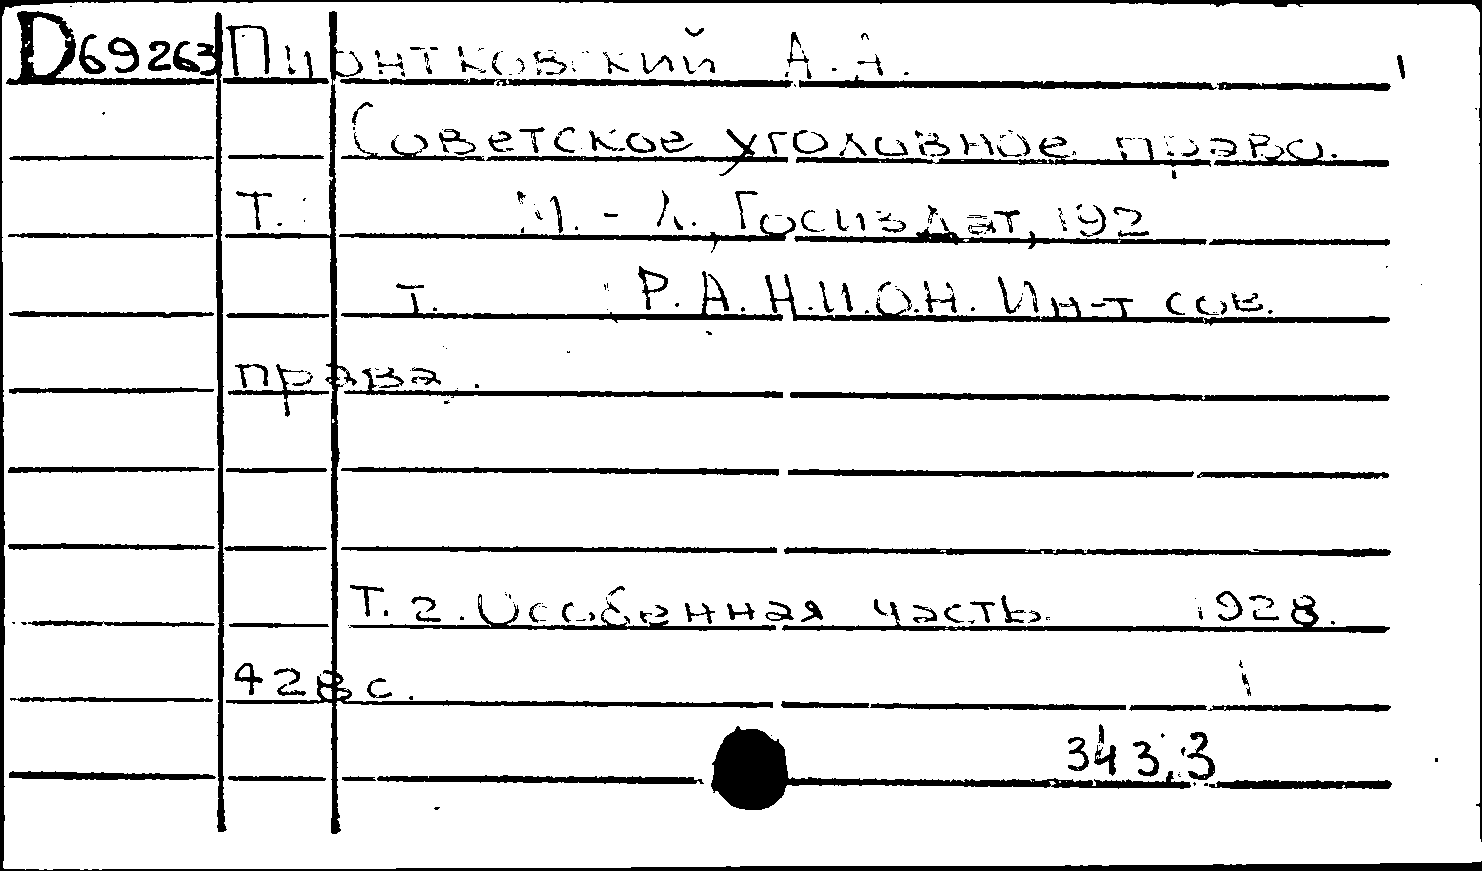 D69263 Пионтковский А.А. 1
Советское уголовное право.
Т. М.-Л., Госиздат, 192
т. Р.А.Н.И.О.Н. Ин-т сов.
права.
Т. 2. Особенная часть 1928.
428 с. 1
343.3